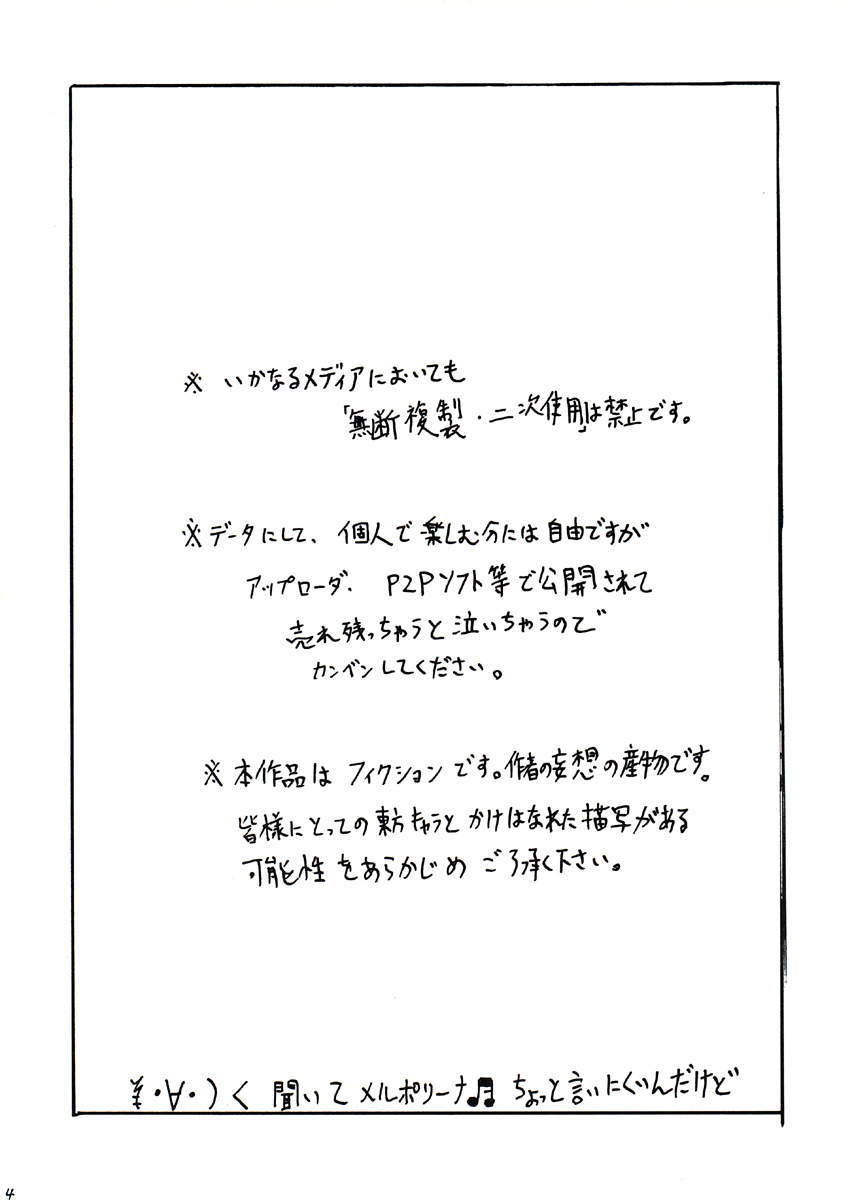 ※ いかなるメディアにおいても
「無断複製・二次使用」は禁止です。
※データにして、個人で楽しむ分には自由ですが
アップローダ、P2Pソフト等で公開されて
売れ残っちゃうと泣いちゃうので
カンベンしてください。
※本作品はフィクションです。作者の妄想の産物です。
皆様にとっての東方キャラとかけはなれた描写がある
可能性をあらかじめご了承下さい。
・∀・)く 聞いてメルポリーナ♫ ちょっと言いにくいんだけど
4